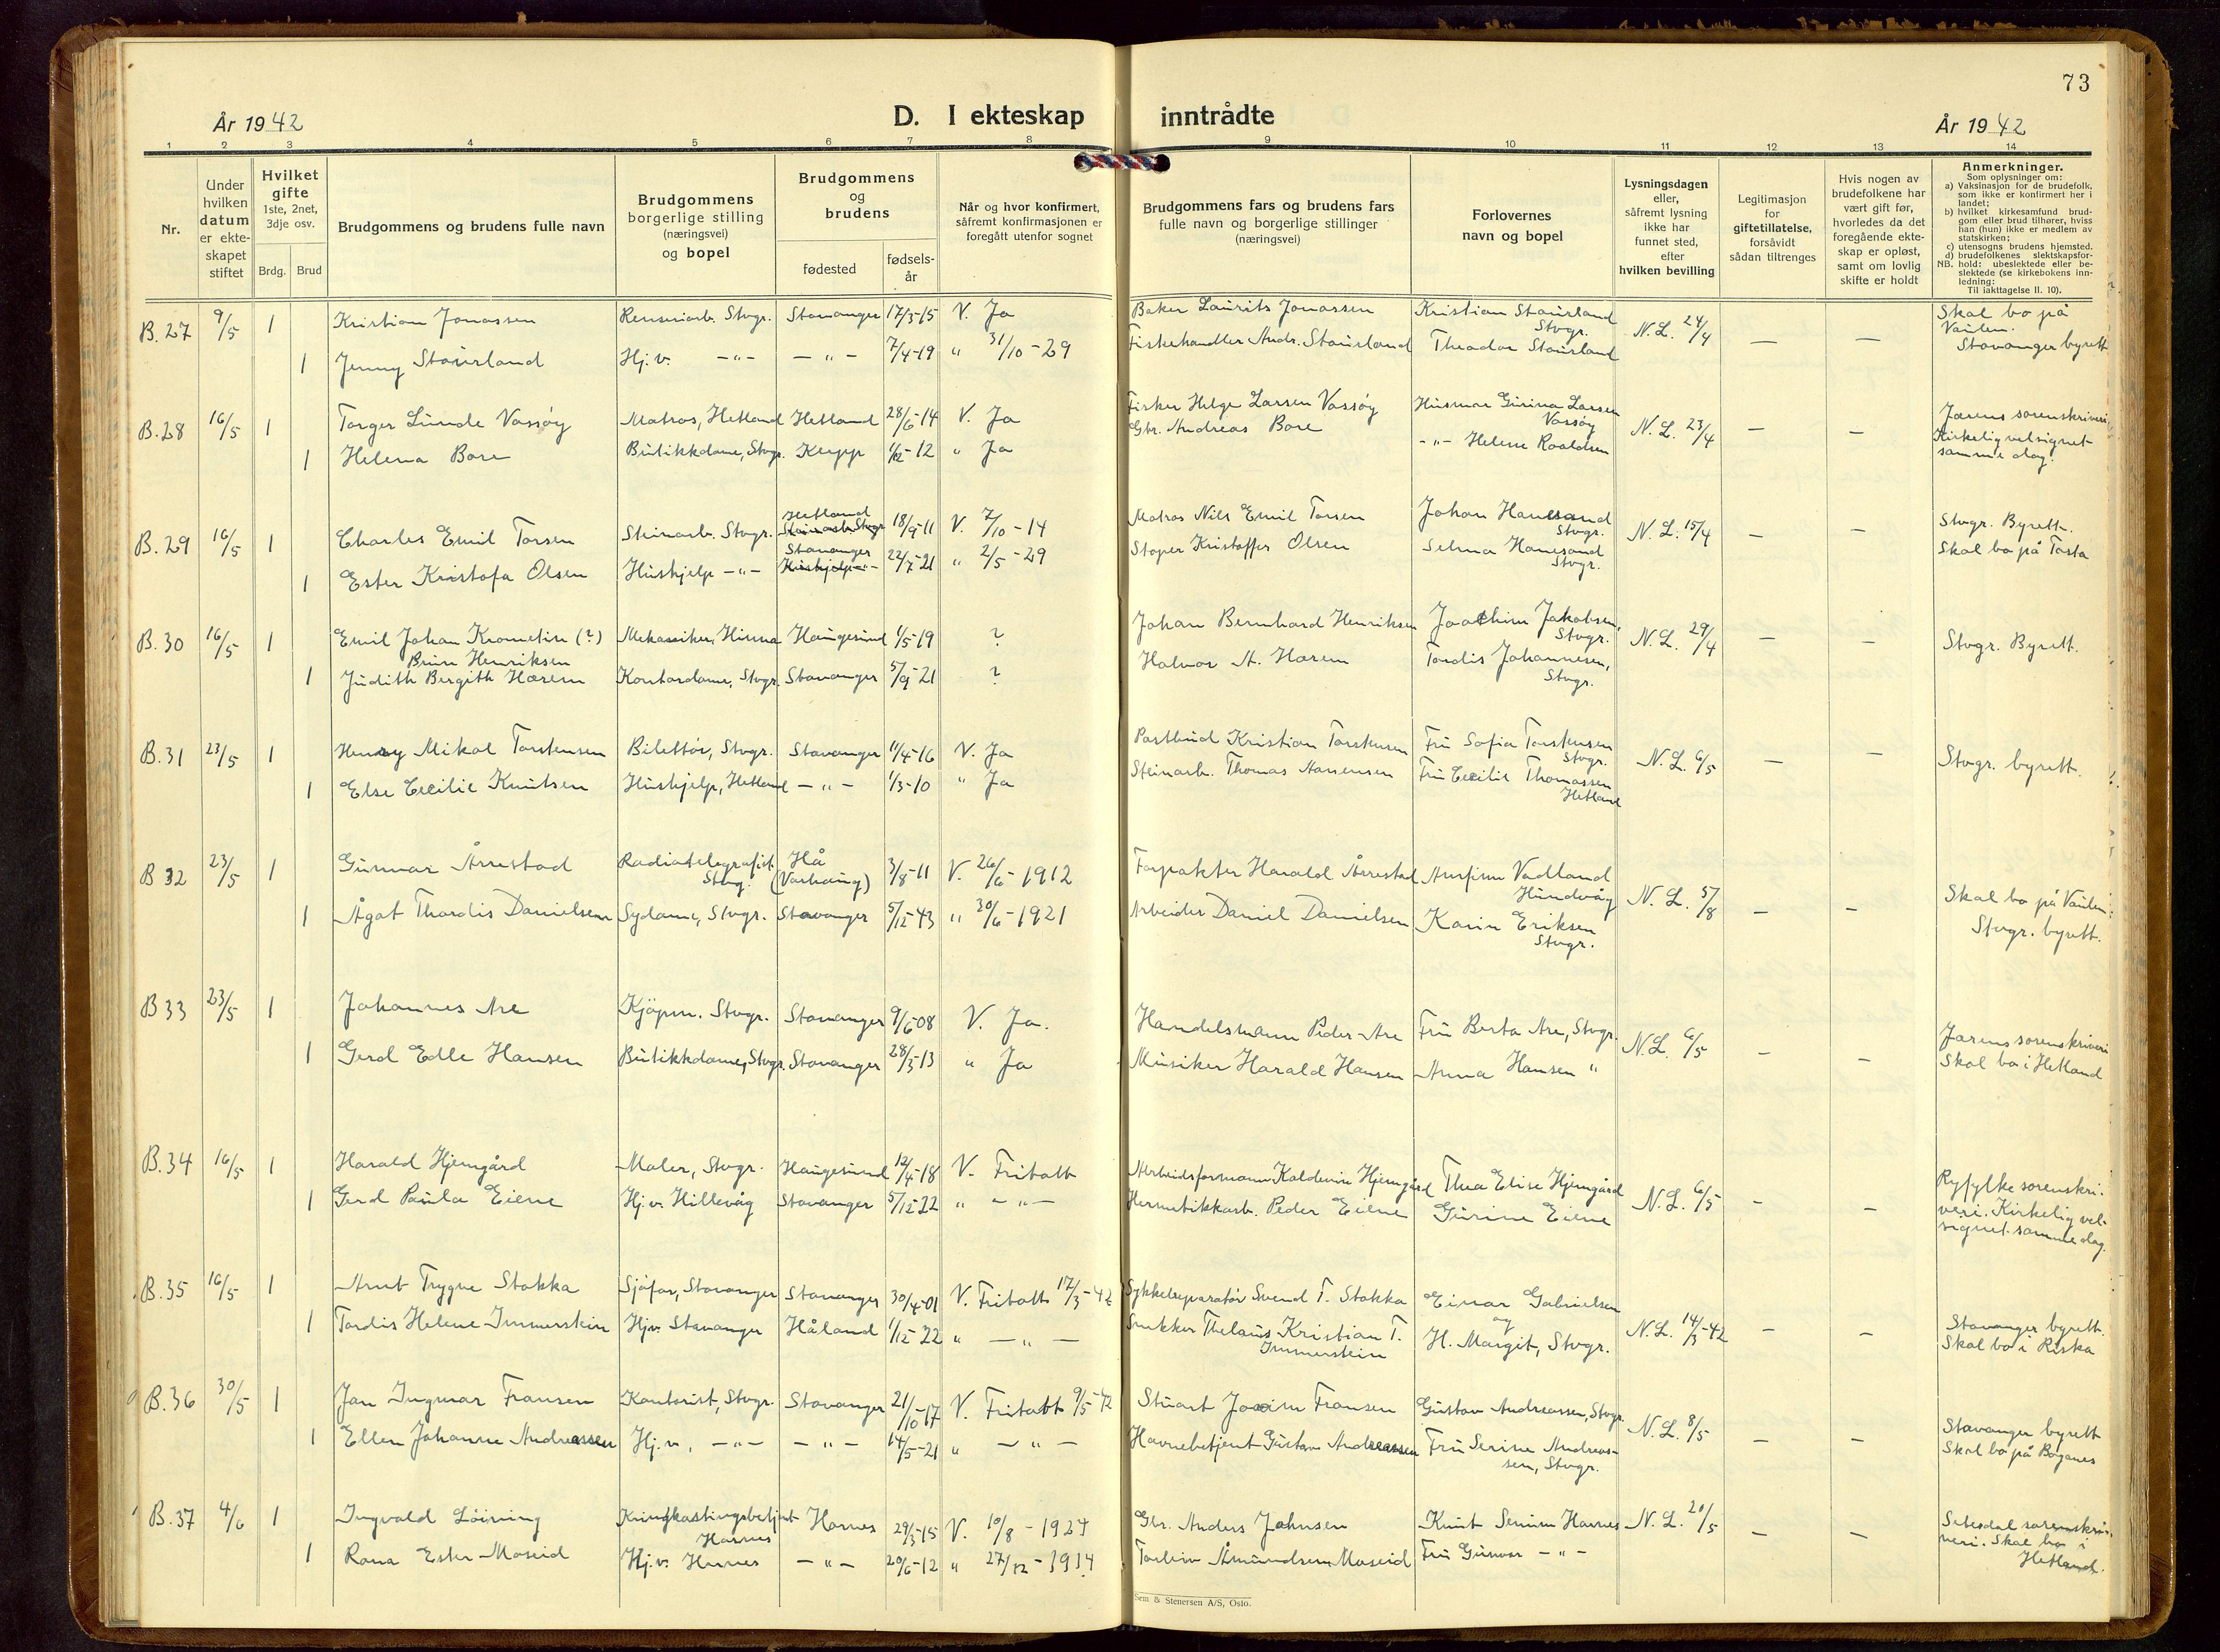 73
År 1942
D. I ekteskap inntrådte
År 1942
1 2 3 4 5 6 7 8 9 10 11 12 13 14
Nr.
Under hvilken datum er ekteskapet stiftet
Hvilket gifte
1ste, 2net, 3dje osv.
Brdg. Brud
Brudgommens og brudens fulle navn
Brudgommens borgerlige stilling (næringsvei) og bopel
Brudgommens og brudens
fødested
fødsels-år
Når og hvor konfirmert, såfremt konfirmasjonen er foregått utenfor sognet
Brudgommens fars og brudens fars fulle navn og borgerlige stillinger (næringsvei)
Forlovernes navn og bopel
Lysningsdagen eller, såfremt lysning ikke har funnet sted, efter hvilken bevilling
Legitimasjon for giftetillatelse, forsåvidt sådan tiltrenges
Hvis nogen av brudefolkene har vært gift før, hvorledes da det foregående ekteskap er opløst, samt om lovlig skifte er holdt
Anmerkninger.
Som oplysninger om:
a) Vaksinasjon for de brudefolk, som ikke er konfirmert her i landet;
b) hvilket kirkesamfund brudgom eller brud tilhører, hviss han (hun) ikke er medlem av statskirken;
c) utensogns brudens hjemsted.
d) brudefolkenes slektskapsforhold: ubeslektede eller beslektede (se kirkebokens innledning:
NB. Til iakttagelse II. 10).
B. 27 9/5 1 Kristian Jonassen Renseriarb. Stvgr. Stavanger 17/3-15 V. Ja Baker Laurits Jonassen Kristian Staurland Stvgr. N.L. 24/4 — — Skal bo på Vaulen.
1 Jenny Staurland Hj.v. -"- -"- 7/4-19 " 31/10-29 Fiskehandler Andr. Staurland Theodor Staurland Stavanger byrett
B. 28 16/5 1 Torger Lunde Vassøy Matros, Hetland Hetland 28/6-14 V. Ja Fisker Helge Larsen Vassøy Husmor Gurina Larsen Vassøy N.L. 23/4 — — Jærens sorenskriveri
1 Helena Bore Butikkdame, Stvgr. Klepp 1/12-12 " Ja Gbr. Andreas Bore -"- Helene Roaldsen Kirkelig velsignet samme dag.
B. 29 16/5 1 Charles Emil Torsen Steinarb. Stvgr. Hetland 18/9-11 V. 7/10-14 Matros Nils Emil Torsen Johan Hanesand Stvgr. N.L. 15/4 — — Stvgr. Byrett.
1 Ester Kristofa Olsen Hushjelp -"- Stavanger 22/7-21 " 2/5-29 Støper Kristoffer Olsen Selma Hanesand Stvgr. Skal bo på Tasta
B. 30 16/5 1 Emil Johan Krometin (?) Brun Henriksen Mekaniker, Hinna Haugesund 1/5-19 ? Johan Bernhard Henriksen Joachim Jakobsen, Stvgr. N.L. 29/4 — — Stvgr. Byrett.
1 Judith Bergith Hærem Kontordame, Stvgr. Stavanger 5/9-21 ? Halvor A. Hærem Tordis Johannesen, Stvgr.
B. 31 23/5 1 Henry Mikal Torstensen Bilettør, Stvgr. Stavanger 11/4-16 V. Ja Postbud Kristian Torstensen Fru Sofia Torstensen Stvgr. N.L. 6/5 — — Stvgr. byrett.
1 Else Cecilie Knutsen Hushjelp, Hetland -"- 1/3-10 " Ja Steinarb. Thomas Fru Cecilie Thomassen Hetland
B 32 23/5 1 Gunnar Årrestad Radiotelegrafist Stvg. Hå (Varhaug) 3/8-11 V. 26/6-1912 Forpakter Harald Årrestad Arnfinn Vadland Hundvåg N.L. 5/8 — — Skal bo på Vaulen
1 Ågot Thordis Danielsen Sydame, Stvgr. Stavanger 5/12-43 " 30/6-1921 Arbeider Daniel Danielsen Karin Eriksen Stvgr. Stvgr. byrett.
B 33 23/5 1 Johannes Are Kjøpm. Stvgr. Stavanger 9/6-08 V. Ja. Handelsmann Peder Are Fru Berta Are, Stvgr. N.L. 6/5 — — Jærens sorenskriveri
1 Gerd Edle Hansen Butikkdame, Stvgr. Stavanger 28/3-13 " Ja Musiker Harald Hansen Anna Hansen " Skal bo i Hetland
B. 34 16/5 1 Harald Hjemgård Maler, Stvgr. Haugesund 12/4-18 V. Fritatt Arbeidsformann Hjemgård Thea Elise Hjemgård N.L. 6/5 — — Ryfylke sorenskri-
1 Gerd Paula Eiene Hj.v. Hillevåg Stavanger 5/12-22 " -"- Hermetikkarb. Peder Eiene Gurine Eiene veri. Kirkelig vel-signet samme dag.
B. 35 16/5 1 Arnt Trygve Stokka Sjåfør, Stavanger Stavanger 30/4-01 V. Fritatt 17/3-42 Sykkelreparatør Svend T. Stokka Einar Gabrielsen og N.L. 14/3-42 — — Stavanger byrett.
1 Tordis Helene Immerstein Hjv. Stavanger Håland 1/12-22 " -"- Snekker Kristian T. Immerstein H. Margit, Stvgr. Skal bo i Riska
B. 36 30/5 1 Jan Ingmar Fransen Kontorist, Stvgr. Stavanger 21/10-17 V. Fritatt 9/5-42 Stuart Joacim Fransen Gustav Andreassen, Stvgr. N.L. 8/5 — — Stavanger byrett
1 Ellen Johanne Andreassen Hj.v, -"- -"- 14/5-21 " -"- Havnebetjent Gustav Andreassen Fru Serine Andreas-sen, Stvgr. Skal bo på Boganes
B. 37 4/6 1 Ingvald Løining Kringkastingsbetjent Hornes Hornes 29/3-15 V. 10/8-1924 Gbr. Anders Johnsen Knut Hornes N.L. 20/5 — — Setesdal sorenskri-
1 Rona Ester Moseid Hj.v. Hornes -"- 20/6-12 " 27/12-1914 Amundsen Moseid Fru Gunvor -"- veri. Skal bo i Hetland.
Sem & Stenersen A/S, Oslo.